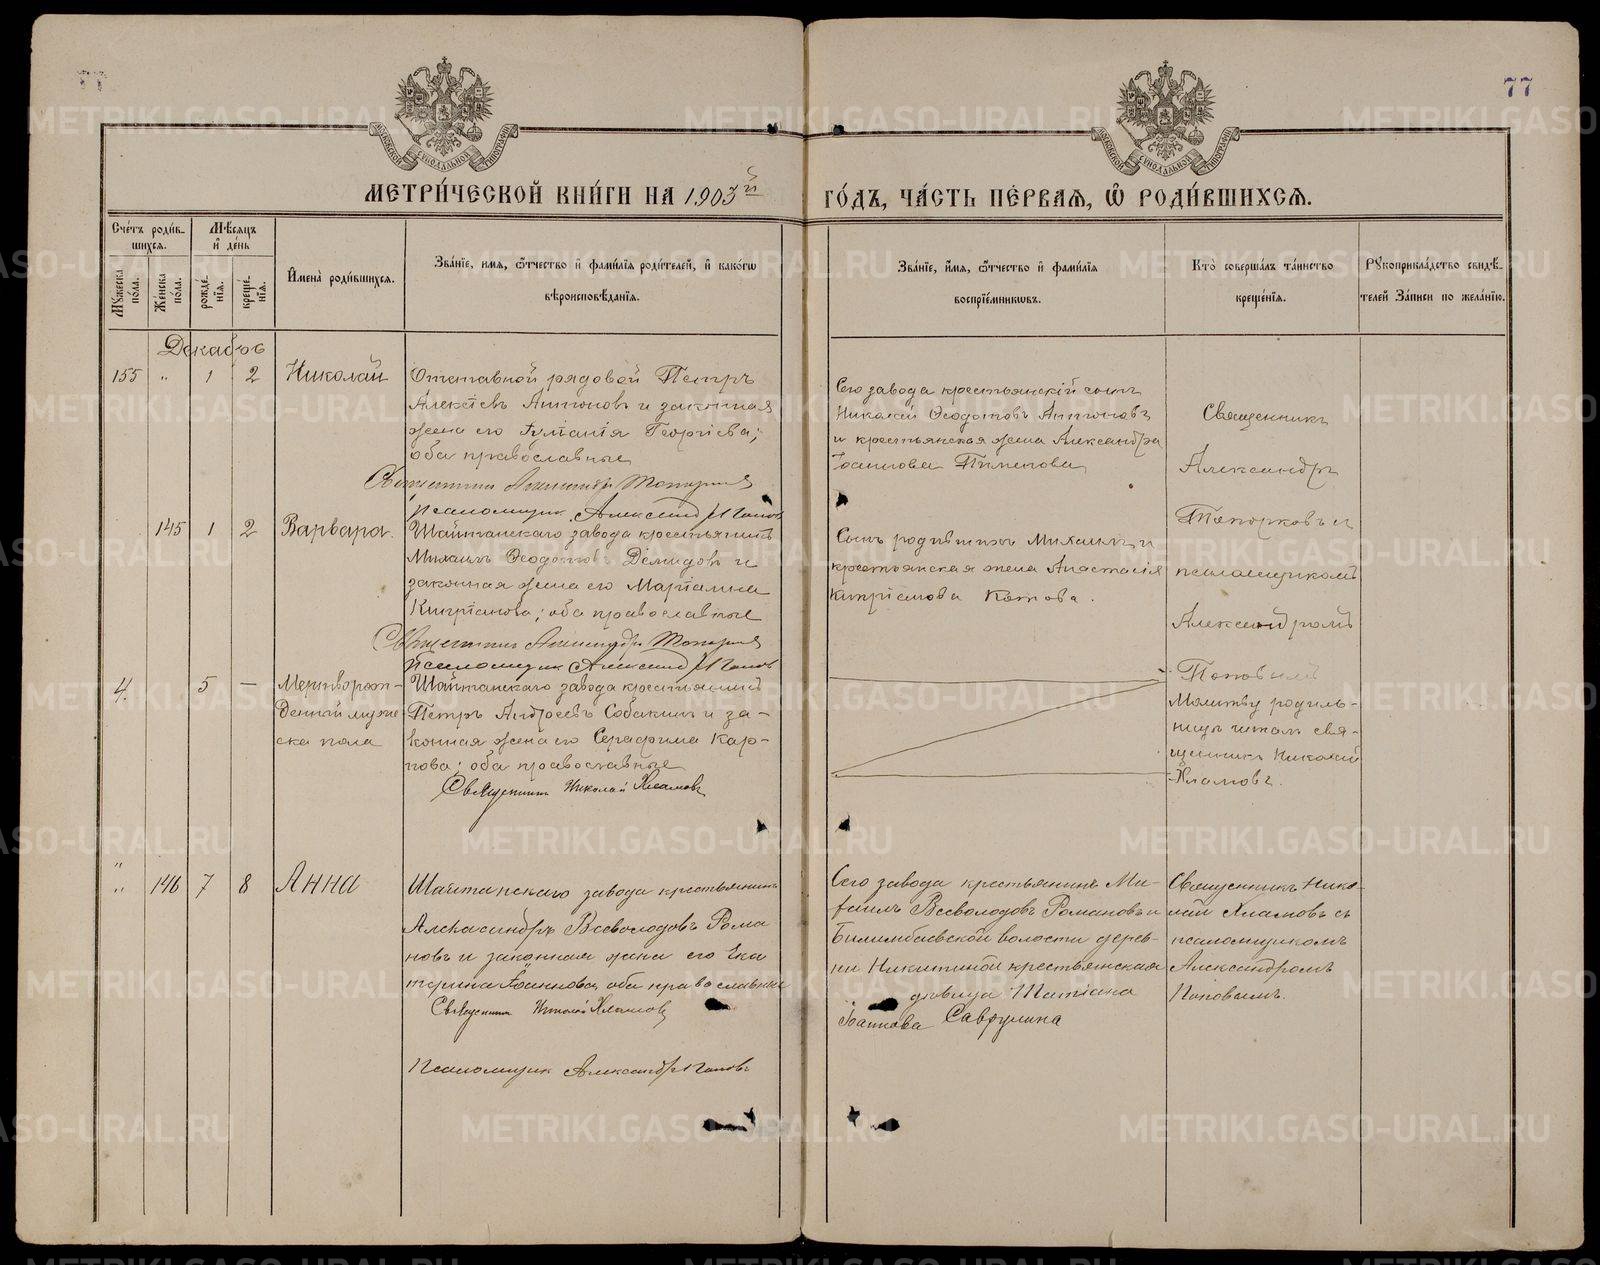 77
77
МОСКОВСКОЙ СѴНОДАЛЬНОЙ ТИПОГРАФІИ
МОСКОВСКОЙ СѴНОДАЛЬНОЙ ТИПОГРАФІИ
МЕТРИ́ЧЕСКОЙ КНИ́ГИ НА 1903й ГО́ДЪ, ЧА́СТЬ ПЕ́РВАЯ, Ѽ РОДИ́ВШИХСЯ.
Сче́тъ роди́в-
шихся.
Мѣ́сяцъ
и҆ де́нь
Мꙋ́жеска по́ла.
Же́нска по́ла.
рожде́нїя.
креще́нїя.
И҆мена̀ роди́вшихся.
Зва́нїе, и҆мя, ѻ҆́тчество и҆ фами́лїя роди́телей, и҆ како́гѡ
вѣроисповѣ́данїя.
Зва́нїе, и҆́мя, ѻ҆́тчество и҆ фами́лїя
воспрїе́мникѡвъ.
Кто̀ соверша́лъ та́инство
креще́нїя.
Рꙋкоприкла́дство свидѣ́-
телей За́писи по жела́нїю.
Декабрь
155 " 1 2 Николай
Отставной рядовой Петръ
Алексѣевъ Антоновъ и законная
жена его Іуліанія Георгіева;
оба православные
Священникъ Александръ Топорковъ
Псаломщикъ Александръ Поповъ
Сего завода крестьянскій сынъ
Николай Ѳеодотовъ Антоновъ
и крестьянская жена Александра
Іоаннова Пименова
Священникъ
Александръ
Топорковъ и
псаломщикомъ
Александромъ
Поповымъ
145 1 2 Варвара.
Шайтанскаго завода крестьянинъ
Михаилъ Ѳеодотовъ Демидовъ и
законная жена его Маріамна
Кипріанова; оба православные
Священникъ Александръ Топорковъ
Псаломщикъ Александръ Поповъ
Сынъ родившихъ Михаилъ и
крестьянская жена Анастасія
Кипріанова Котова.
4. 5 — Мертворож-
денный муже
ска пола
Шайтанскаго завода крестьянинъ
Петръ Андреевъ Собакинъ и за-
конная жена его Серафима Кар-
пова; оба православные
Священникъ Николай Хламовъ
Молитву родиль-
ницѣ читалъ свя-
щенникъ Николай
Хламовъ.
"
" 146 7 8 Анна
Шайтанскаго завода крестьянинъ
Александръ Всеволодовъ Рома
новъ и законная жена его Ека
терина Іоаннова, оба православные
Священникъ Николай Хламовъ
Псаломщикъ Александръ Поповъ
Сего завода крестьянинъ Ми-
хаилъ Всеволодовъ Романовъ и
Билимбаевской волости дерев-
ни Никитиной крестьянская
дѣвица Татіана
Іоаннова Саврулина
Священникъ Нико-
лай Хламовъ съ
псаломщикомъ
Александромъ
Поповымъ.
METRIKI.GASO-URAL.RU